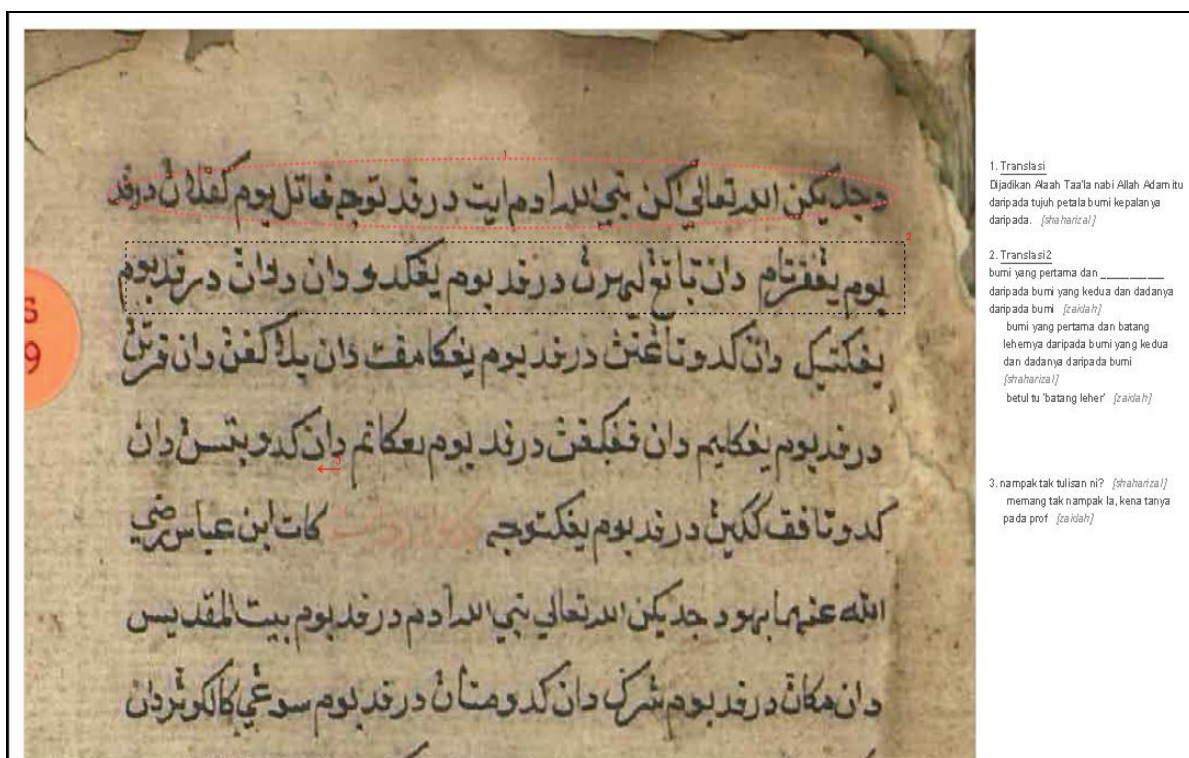 دجديكن الله تعالي اكن نبي الله ادم ايت درفد توجه فتل بوم كفلان درفد
بوم يڠفرتام دان باتڠ ليهرن درفد بوم يڠكدو دان دادان درفد بوم
يڠكتيك دان كدو تاڠنن درفد بوم يڠكامفت دان بلاكڠن دان
درفد بوم يڠكليم دان درفد بوم يڠكانم دان كدو بتسن دان
كدو تافق ككين درفد بوم يڠكتوجه كات ابن عباس رضي
الله عنهما بهو دجديكن الله تعالي نبي الله ادم درفد بوم بيت المقديس
دان مكان درفد بوم شرك دان كدو متان درفد بوم سوڠي كالكوثر دان
S
9
1
2
3
1. Translasi
Dijadikan Alaah Taa'la nabi Allah Adam itu
daripada tujuh petala bumi kepalanya
daripada. [shaharizal]
2. Translasi2
bumi yang pertama dan ___________
daripada bumi yang kedua dan dadanya
daripada bumi [zaidah]
bumi yang pertama dan batang
lehernya daripada bumi yang kedua
dan dadanya daripada bumi
[shaharizal]
betul tu 'batang leher' [zaidah]
3. nampak tak tulisan ni? [shaharizal]
memang tak nampak la, kena tanya
pada prof [zaidah]